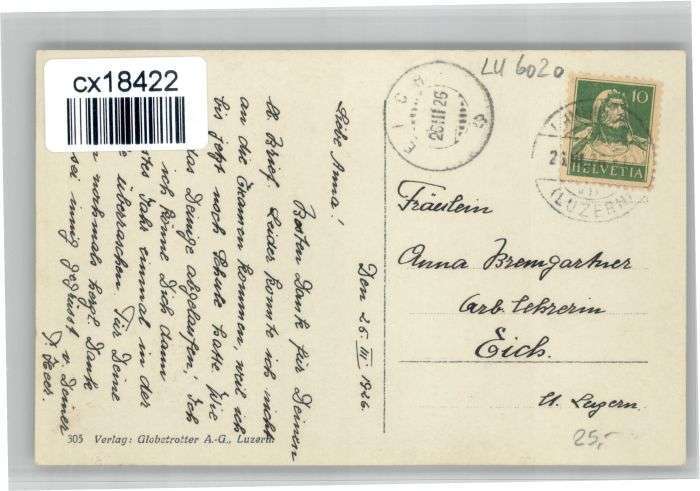 cx18422
LU 6020
10
HELVETIA
(LUZERN)
EICH
26III26
Den 26 III 1926.
Liebe Anna!
Besten Dank für Deinen
lb. Brief. Leider konnte ich nicht
an die Examen kommen, weil ich
bis jetzt noch Schule hatte. Wie
das Deinige abgelaufen? Ich
ich könne Dich dann
Jahr einmal in der
überraschen. Für Deine
nochmals herzl. Dank
sei innig gegrüsst v. Deiner
Fräulein
Anna Bremgartner
Arb. lehrerin
Eich.
Kt. Luzern.
25,-
305 Verlag: Globetrotter A.-G., Luzern.